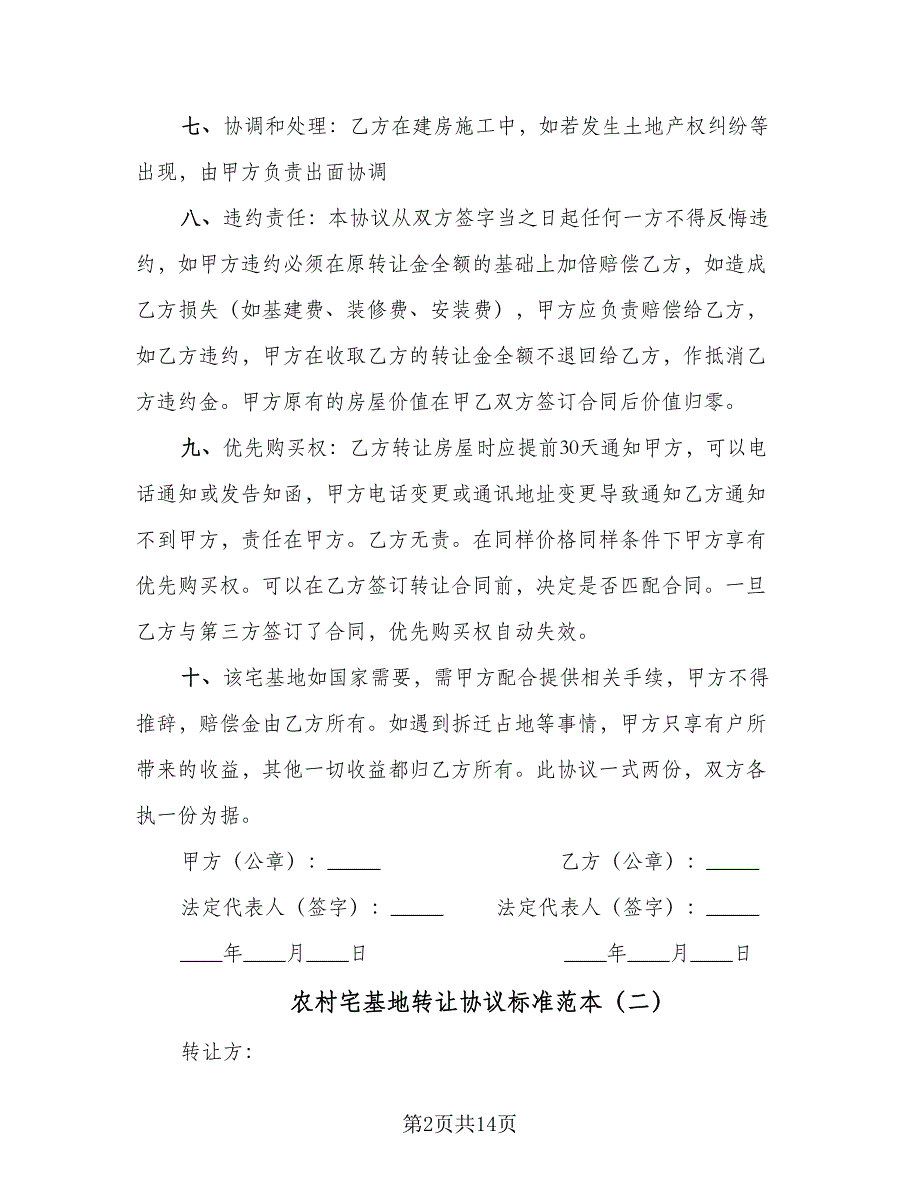 七、协调和处理：乙方在建房施工中，如若发生土地产权纠纷等
出现，由甲方负责出面协调
八、违约责任：本协议从双方签字当之日起任何一方不得反悔违
约，如甲方违约必须在原转让金全额的基础上加倍赔偿乙方，如造成
乙方损失（如基建费、装修费、安装费），甲方应负责赔偿给乙方，
如乙方违约，甲方在收取乙方的转让金全额不退回给乙方，作抵消乙
方违约金。甲方原有的房屋价值在甲乙双方签订合同后价值归零。
九、优先购买权：乙方转让房屋时应提前30天通知甲方，可以电
话通知或发告知函，甲方电话变更或通讯地址变更导致通知乙方通知
不到甲方，责任在甲方。乙方无责。在同样价格同样条件下甲方享有
优先购买权。可以在乙方签订转让合同前，决定是否匹配合同。一旦
乙方与第三方签订了合同，优先购买权自动失效。
十、该宅基地如国家需要，需甲方配合提供相关手续，甲方不得
推辞，赔偿金由乙方所有。如遇到拆迁占地等事情，甲方只享有户所
带来的收益，其他一切收益都归乙方所有。此协议一式两份，双方各
执一份为据。
甲方（公章）：_____ 乙方（公章）：_____
法定代表人（签字）：_____ 法定代表人（签字）：_____
____年____月____日 ____年____月____日
农村宅基地转让协议标准范本（二）
转让方：
第2页共14页